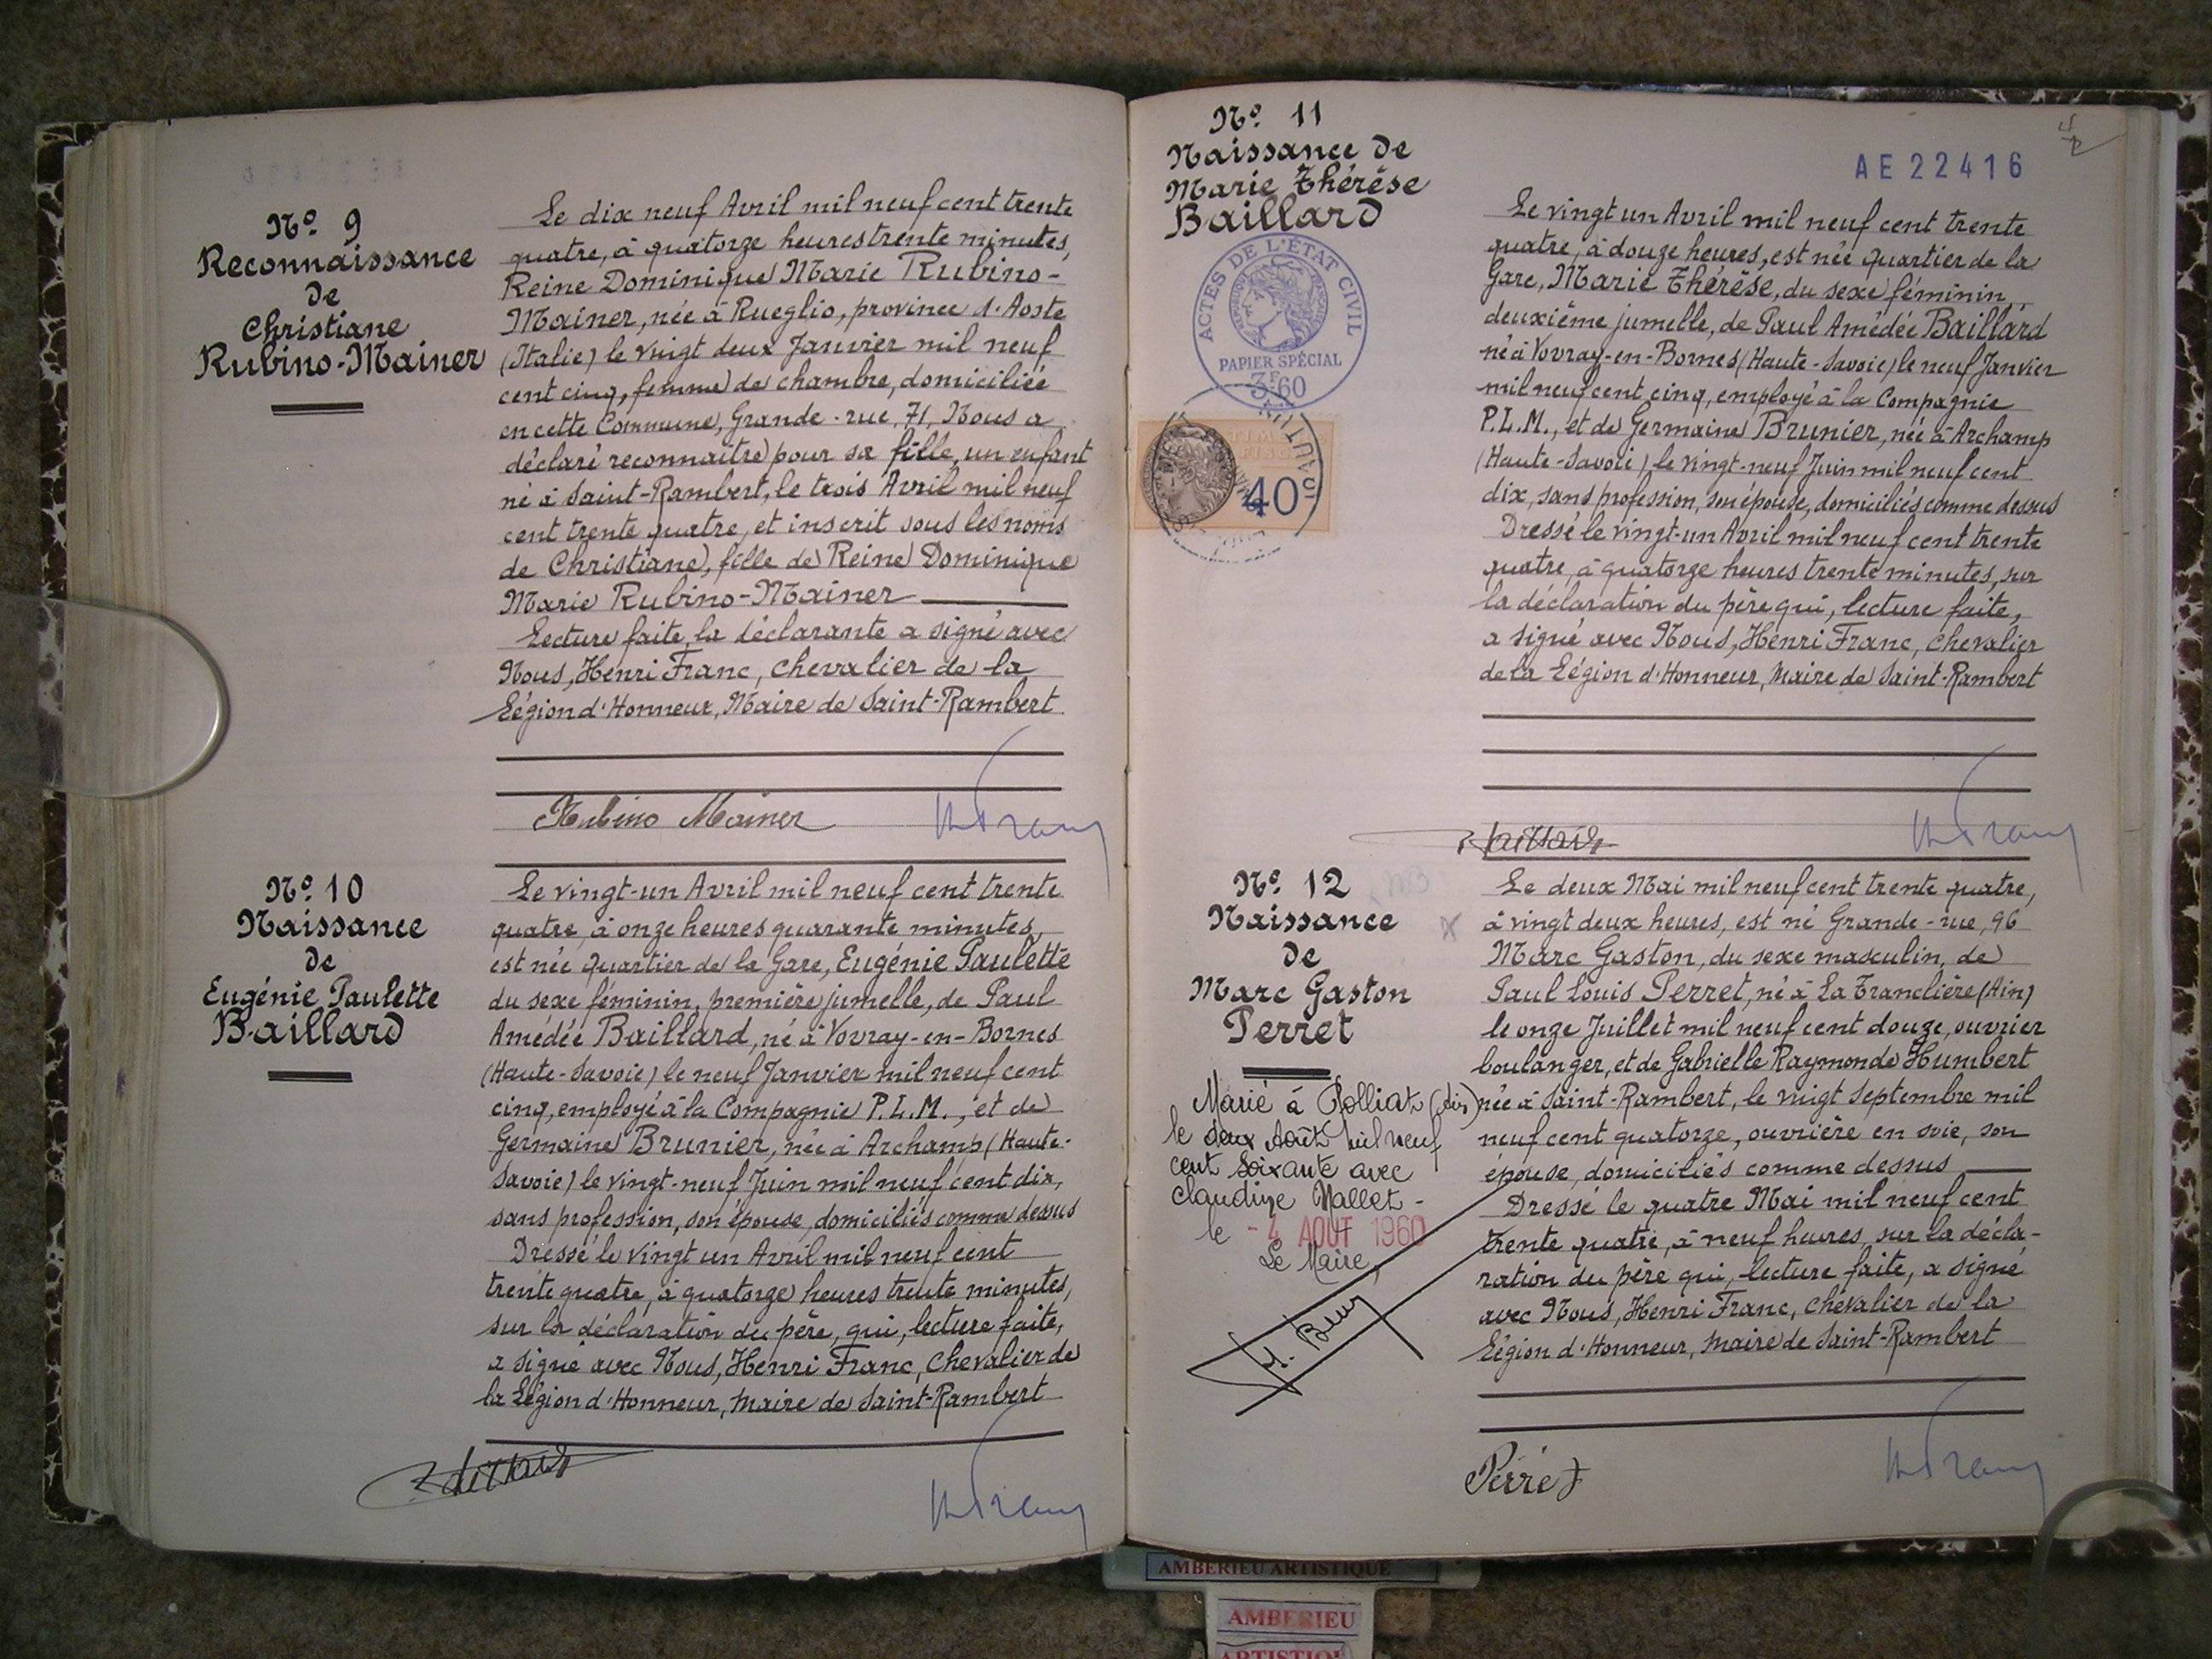 Nº 9
Reconnaissance
de
Christiane
Rubino-Mainer
Le dix neuf Avril mil neuf cent trente
quatre, à quatorze heures trente minutes,
Reine Dominique Marie Rubino-
Mainer, née à Rueglio, province d'Aoste
(Italie) le vingt deux Janvier mil neuf
cent cinq, femme de chambre, domiciliée
en cette Commune, Grande-rue, 71, Nous a
déclaré reconnaitre pour sa fille, un enfant
né à Saint-Rambert, le trois Avril mil neuf
cent trente quatre, et inscrit sous les noms
de Christiane, fille de Reine Dominique
Marie Rubino-Mainer
Lecture faite, la déclarante a signé avec
Nous, Henri Franc, Chevalier de la
Légion d'Honneur, Maire de Saint-Rambert
Rubino Mainer
HFranc
Nº 10
Naissance
de
Eugénie Paulette
Baillard
Le vingt-un Avril mil neuf cent trente
quatre, à onze heures quarante minutes,
est née quartier de la Gare, Eugénie Paulette
du sexe féminin, première jumelle, de Paul
Amédée Baillard, né à Vovray-en-Bornes
(Haute-Savoie) le neuf Janvier mil neuf cent
cinq, employé à la Compagnie P.L.M., et de
Germaine Brunier, née à Archamp (Haute-
Savoie) le vingt-neuf Juin mil neuf cent dix,
sans profession, son épouse, domiciliés comme dessus
Dressé le vingt un Avril mil neuf cent
trente quatre, à quatorze heures trente minutes,
sur la déclaration du père, qui, lecture faite,
a signé avec Nous, Henri Franc, Chevalier de
la Légion d'Honneur, Maire de Saint-Rambert
HFranc
Nº 11
Naissance de
Marie Thérèse
Baillard
ACTES DE L'ÉTAT CIVIL
PAPIER SPÉCIAL
3F60
40
AE22416
Le vingt un Avril mil neuf cent trente
quatre, à douze heures, est née quartier de la
Gare, Marie Thérèse, du sexe féminin,
deuxième jumelle, de Paul Amédée Baillard
né à Vovray-en-Bornes (Haute-Savoie) le neuf Janvier
mil neuf cent cinq, employé à la Compagnie
P.L.M., et de Germaine Brunier, née à Archamp
(Haute-Savoie), le vingt-neuf Juin mil neuf cent
dix, sans profession, son épouse, domiciliés comme dessus
Dressé le vingt-un Avril mil neuf cent trente
quatre, à quatorze heures trente minutes, sur
la déclaration du père qui, lecture faite,
a signé avec Nous, Henri Franc, Chevalier
de la Légion d'Honneur, Maire de Saint-Rambert
HFranc
Nº 12
Naissance
de
Marc Gaston
Perret
Marié à Polliat (Ain)
le deux Août mil neuf
cent soixante avec
Claudine Mallet -
le - 4 AOUT 1960
Le Maire,
Le deux Mai mil neuf cent trente quatre,
à vingt deux heures, est né Grande-rue, 96
Marc Gaston, du sexe masculin, de
Paul Louis Perret, né à La Tranclière (Ain)
le onze Juillet mil neuf cent douze, ouvrier
boulanger, et de Gabrielle Raymonde Humbert
née à Saint-Rambert, le vingt septembre mil
neuf cent quatorze, ouvrière en soie, son
épouse, domiciliés comme dessus
Dressé le quatre Mai mil neuf cent
trente quatre, à neuf heures, sur la décla-
ration du père qui, lecture faite, a signé
avec Nous, Henri Franc, Chevalier de la
Légion d'Honneur, Maire de Saint-Rambert
Perret
HFranc
AMBERIEU ARTISTIQUE
AMBERIEU
ARTISTIQUE